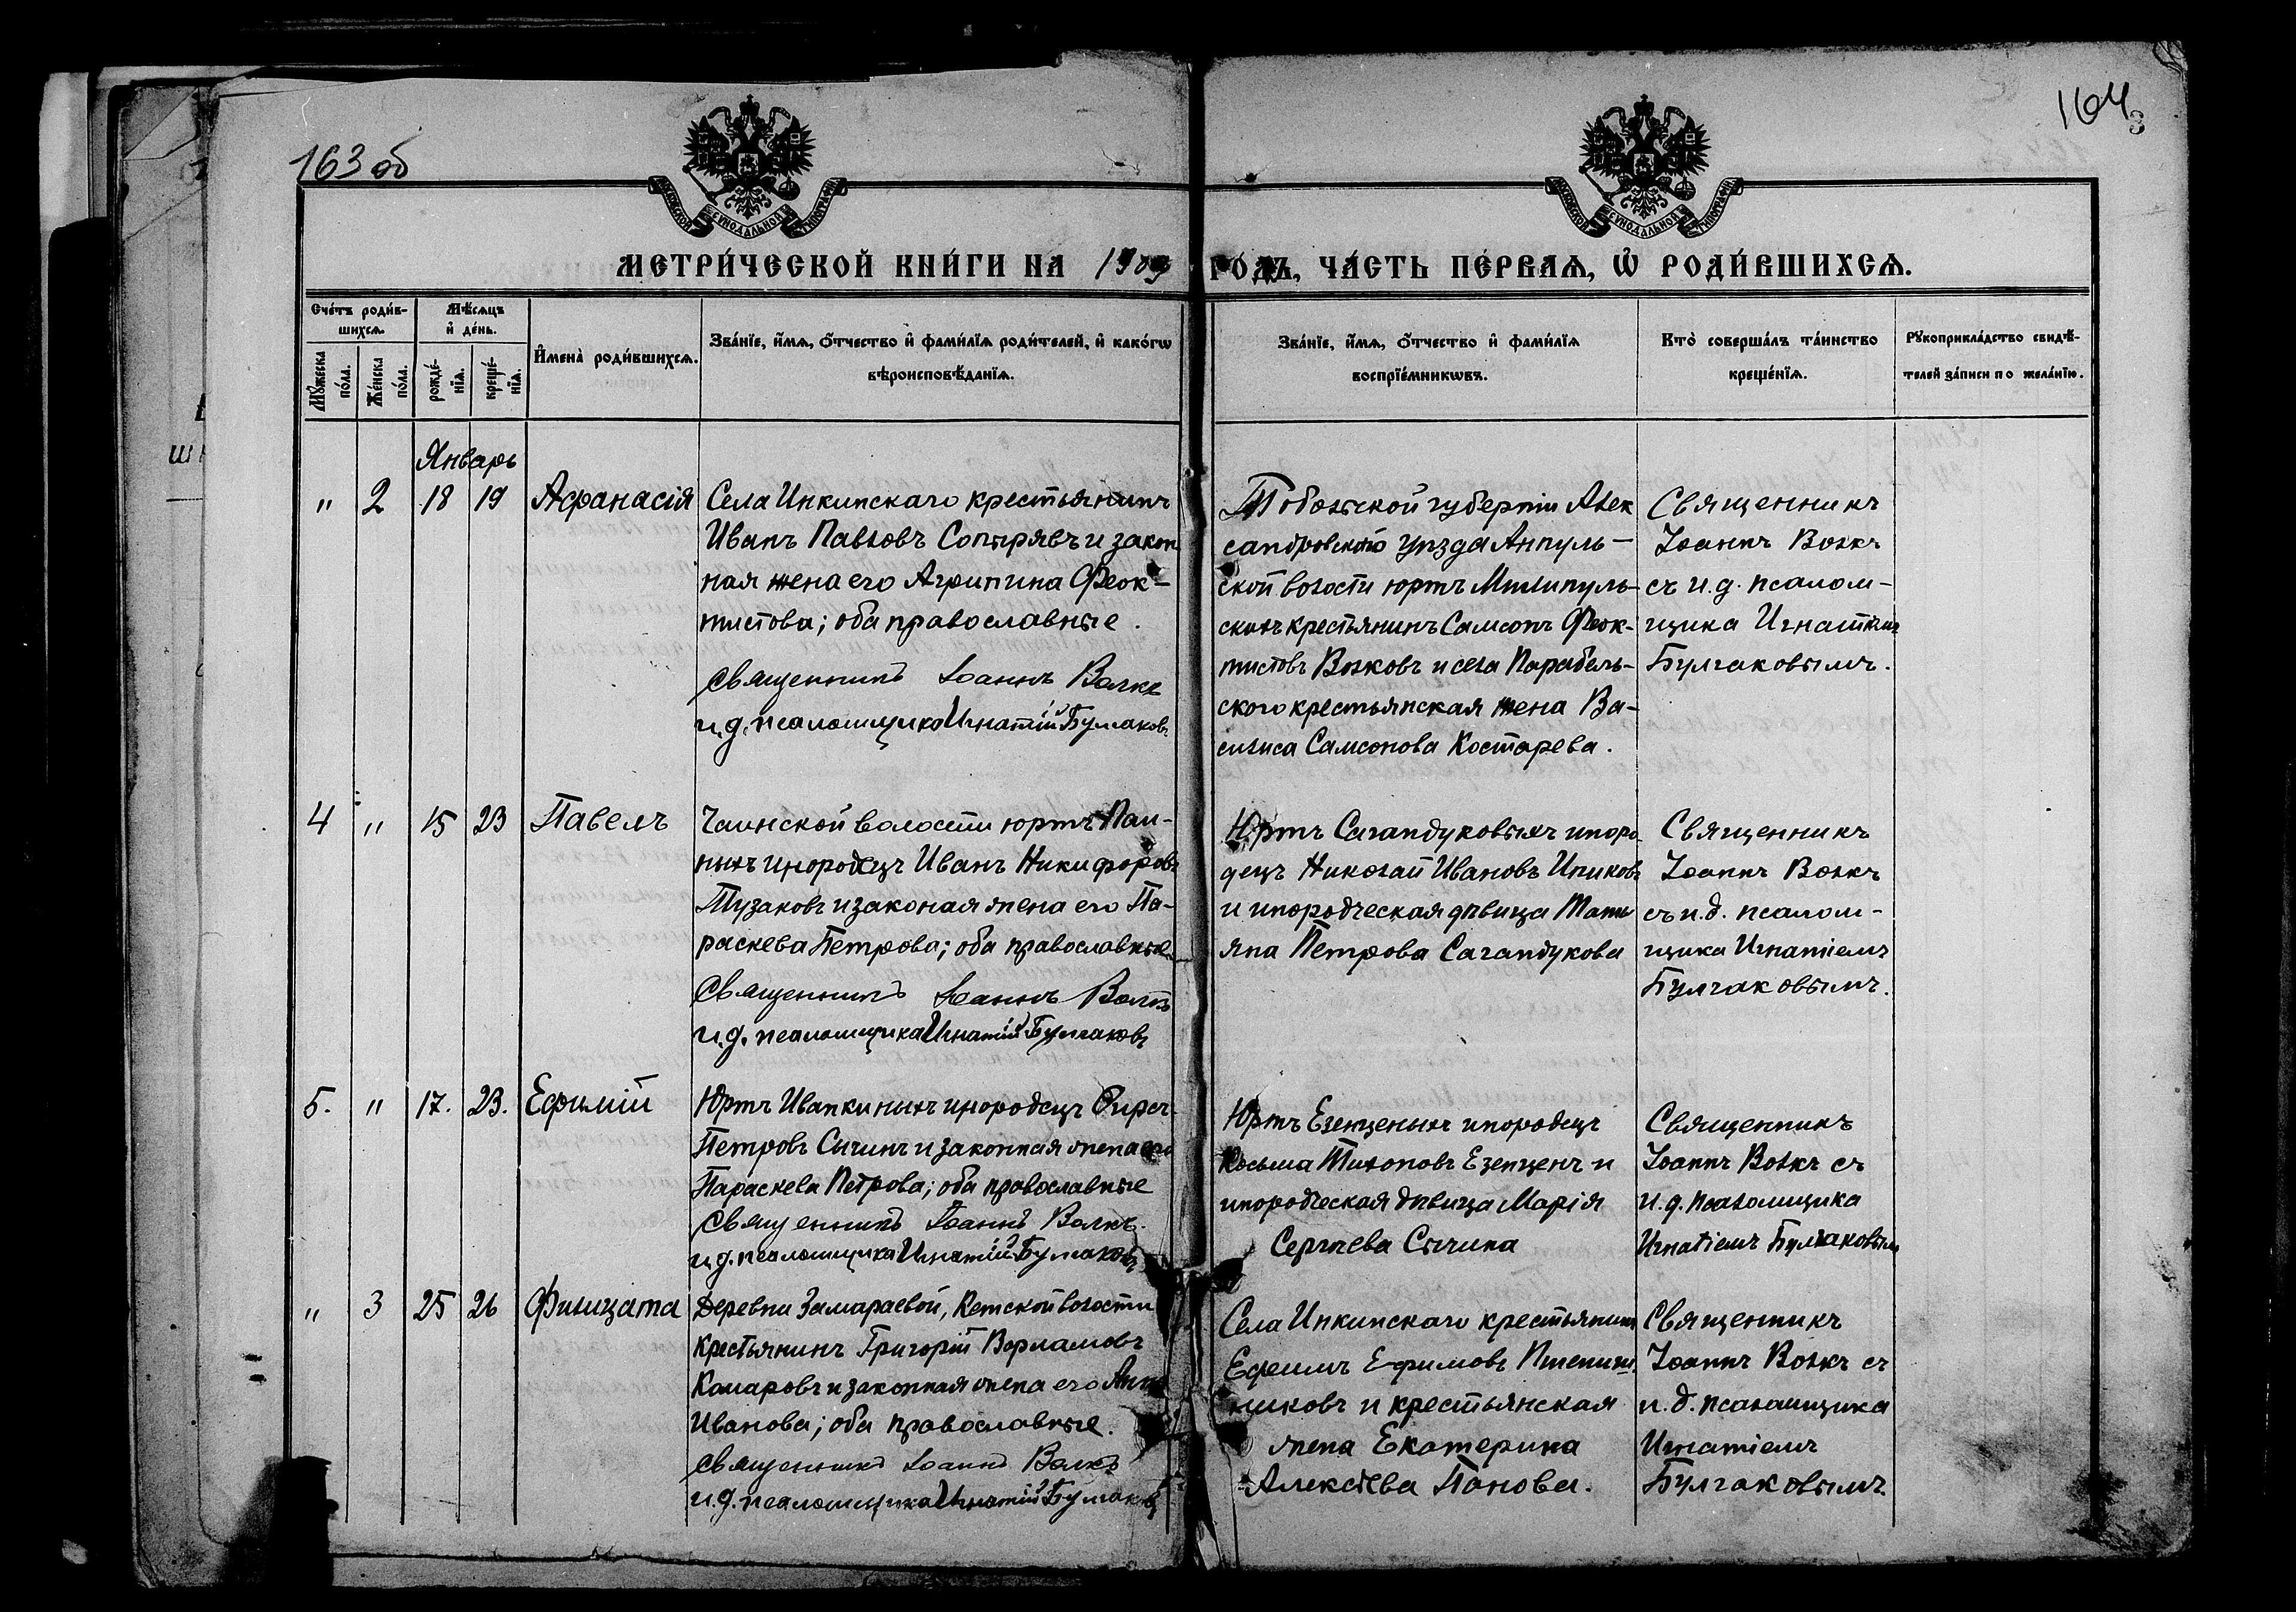 163 об
164
3
МОСКОВСКОЙ СѴНОДАЛЬНОЙ ТИПОГРАФІИ
МОСКОВСКОЙ СѴНОДАЛЬНОЙ ТИПОГРАФІИ
МЕТРИ́ЧЕСКОЙ КНИ́ГИ НА 1909 ГО́ДЪ, ЧА́СТЬ ПЕ́РВАѦ, Ѡ҆ РОДИ́ВШИХСѦ.
Сче́тъ роди́в-
шихсѧ.
Мѣ́сѧцъ
и҆ де́нь.
Мꙋ́жеска
по́ла.
Же́нска
по́ла.
рожде́-
нїѧ.
креще́-
нїѧ.
И҆мена̀ роди́вшихсѧ.
Зва́нїе, и҆́мѧ, ѻ҆́тчество и҆ фами́лїѧ роди́телей, и҆ како́гѡ
вѣроисповѣ́данїѧ.
Зва́нїе, и҆́мѧ, ѻ҆́тчество и҆ фами́лїѧ
воспрїе́мникѡвъ.
Кто̀ соверша́лъ та́инство
креще́нїѧ.
Рꙋкоприкла́дство свидѣ́-
телей за́писи по жела́нїю.
Январь
" 2 18 19 Афанасія
Села Инкинскаго крестьянинъ
Иванъ Павловъ Сопыряевъ и закон
ная жена его Агрипина Феок-
тистова; оба православные.
Священникъ Іоаннъ Волкъ
и.д. псаломщика Игнатій Булгаковъ
Тобольской губерніи Алек
сандровскаго уѣзда
ской волости юртъ
скихъ крестьянинъ Самсонъ Феок-
тистовъ Волковъ и села Парабель-
скаго крестьянская жена Ва-
силиса Самсонова Костарева.
Священникъ
Іоаннъ Волкъ
съ и.д. псалом-
щика Игнатіемъ
Булгаковымъ.
4 " 15 23 Павелъ
Чаинской волости юртъ Паи-
ныхъ инородецъ Иванъ Никифоровъ
Тузаковъ и законая жена его Па-
раскева Петрова; оба православные.
Священникъ Іоаннъ Волкъ
и.д. псаломщика Игнатій Булгаковъ
Юртъ Сагандуковыхъ иноро
децъ Николай Ивановъ
и инородческая дѣвица Тать
яна Петрова Сагандукова
Священникъ
Іоаннъ Волкъ
съ и.д. псалом-
щика Игнатіемъ
Булгаковымъ.
5. " 17. 23. Ефимій
Юртъ Иванкиныхъ инородецъ
Петровъ Сычинъ и законная жена его
Параскева Петрова; оба православные
Священникъ Іоаннъ Волкъ.
и.д. псаломщика Игнатій Булгаковъ
Юртъ Езенгеныхъ инородецъ
Косьма Тихоновъ Езенгенъ и
инородческая дѣвица Марія
Сергѣева Сычина
Священникъ
Іоаннъ Волкъ съ
и.д. псаломщика
Игнатіемъ Булгаковым
" 3 25 26 Филицата
Деревни Замараевой, Кетской волости
крестьянинъ Григорій Варламовъ
Комаровъ и законная жена его Анна
Иванова; оба православные.
Священникъ Іоаннъ Волкъ
и.д. псаломщика Игнатій Булгаковъ
Села Инкинскаго крестьянинъ
Ефимъ Ефимовъ Пшенич-
никовъ и крестьянская
жена Екатерина
Алексѣева Панова.
Священникъ
Іоаннъ Волкъ съ
и.д. псаломщика
Игнатіемъ
Булгаковымъ.